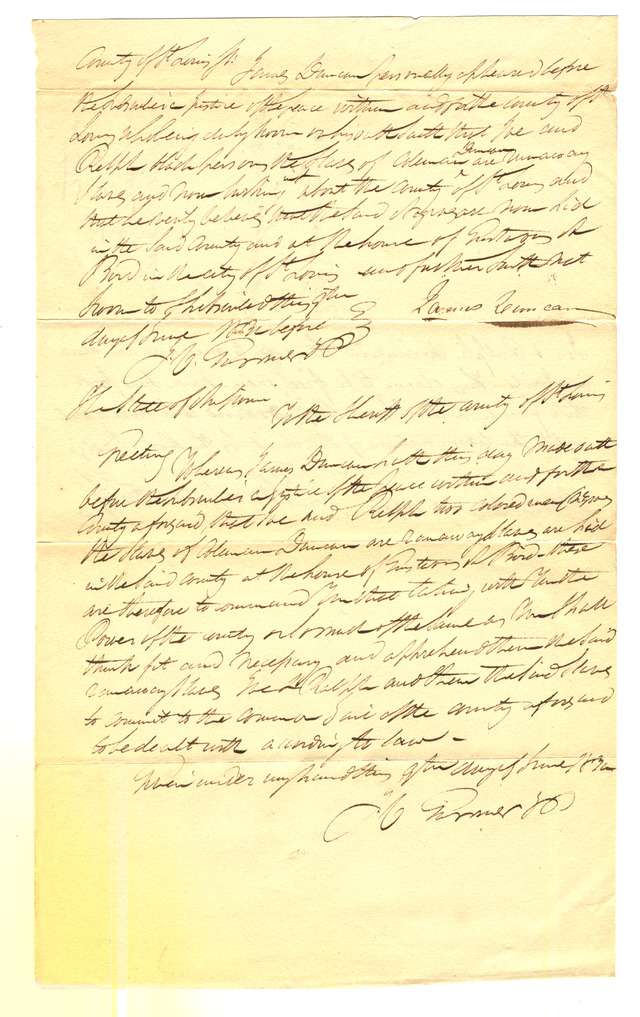 County of St Louis ss. James Duncan personally appeared before
the subscriber a Justice of the peace within and for the county of St
Louis who being duly sworn on his oath saith that Joe and
Ralph black persons the slaves of Coleman Duncan are runaway
slaves and now lurking about the county of St Louis and
that he verily believes that the said Negroes are now hid
in the said county and at the house of Gustavus A
Bird in the city of St Louis and further saith not
Sworn to & subscribed this 9th
day of June before James Duncan
The State of Missouri To the Sheriff of the county of St Louis
Greeting Whereas James Duncan hath this day made oath
before the subscriber a Justice of the peace within and for the
County aforesaid, that Joe and Ralph two colored men
the slaves of Coleman Duncan are runaway slaves are hid
in the said county at the house of Gustavus A Bird these
are therefore to command you that taking with you the
Power of the county or so much of the same as you shall
think fit and necessary and apprehend them the said
runaway slaves Joe & Ralph and them the said slaves
to commit to the common Jail of the county aforesaid
to be dealt with according to law -
Given under my hand this 9th day of June